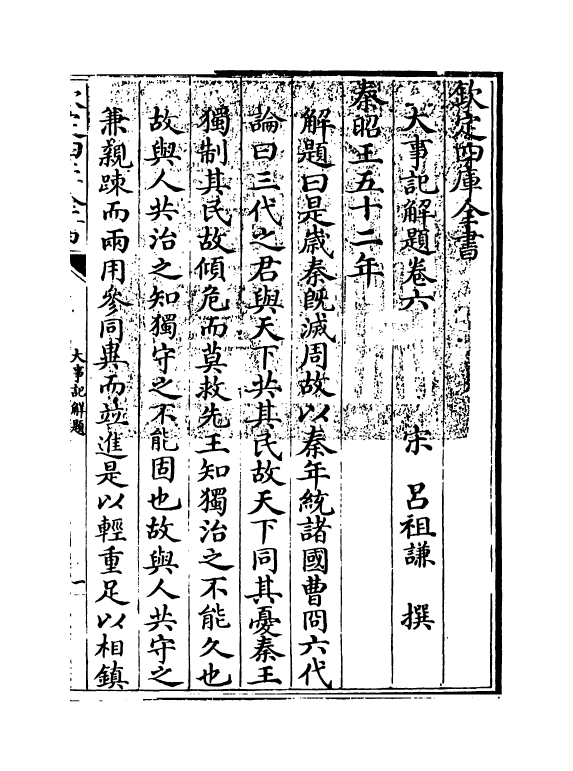 欽定四庫全書
大事記解題卷六 宋 呂祖謙 撰
秦昭王五十二年
解題曰是嵗秦既滅周故以秦年統諸國曹冏六代
論曰三代之君與天下共其民故天下同其憂秦王
獨制其民故傾危而莫救先王知獨治之不能久也
故與人共治之知獨守之不能固也故與人共守之
兼親踈而兩用參同異而並進是以輕重足以相鎮
欽定四庫全書
大事記解題
一